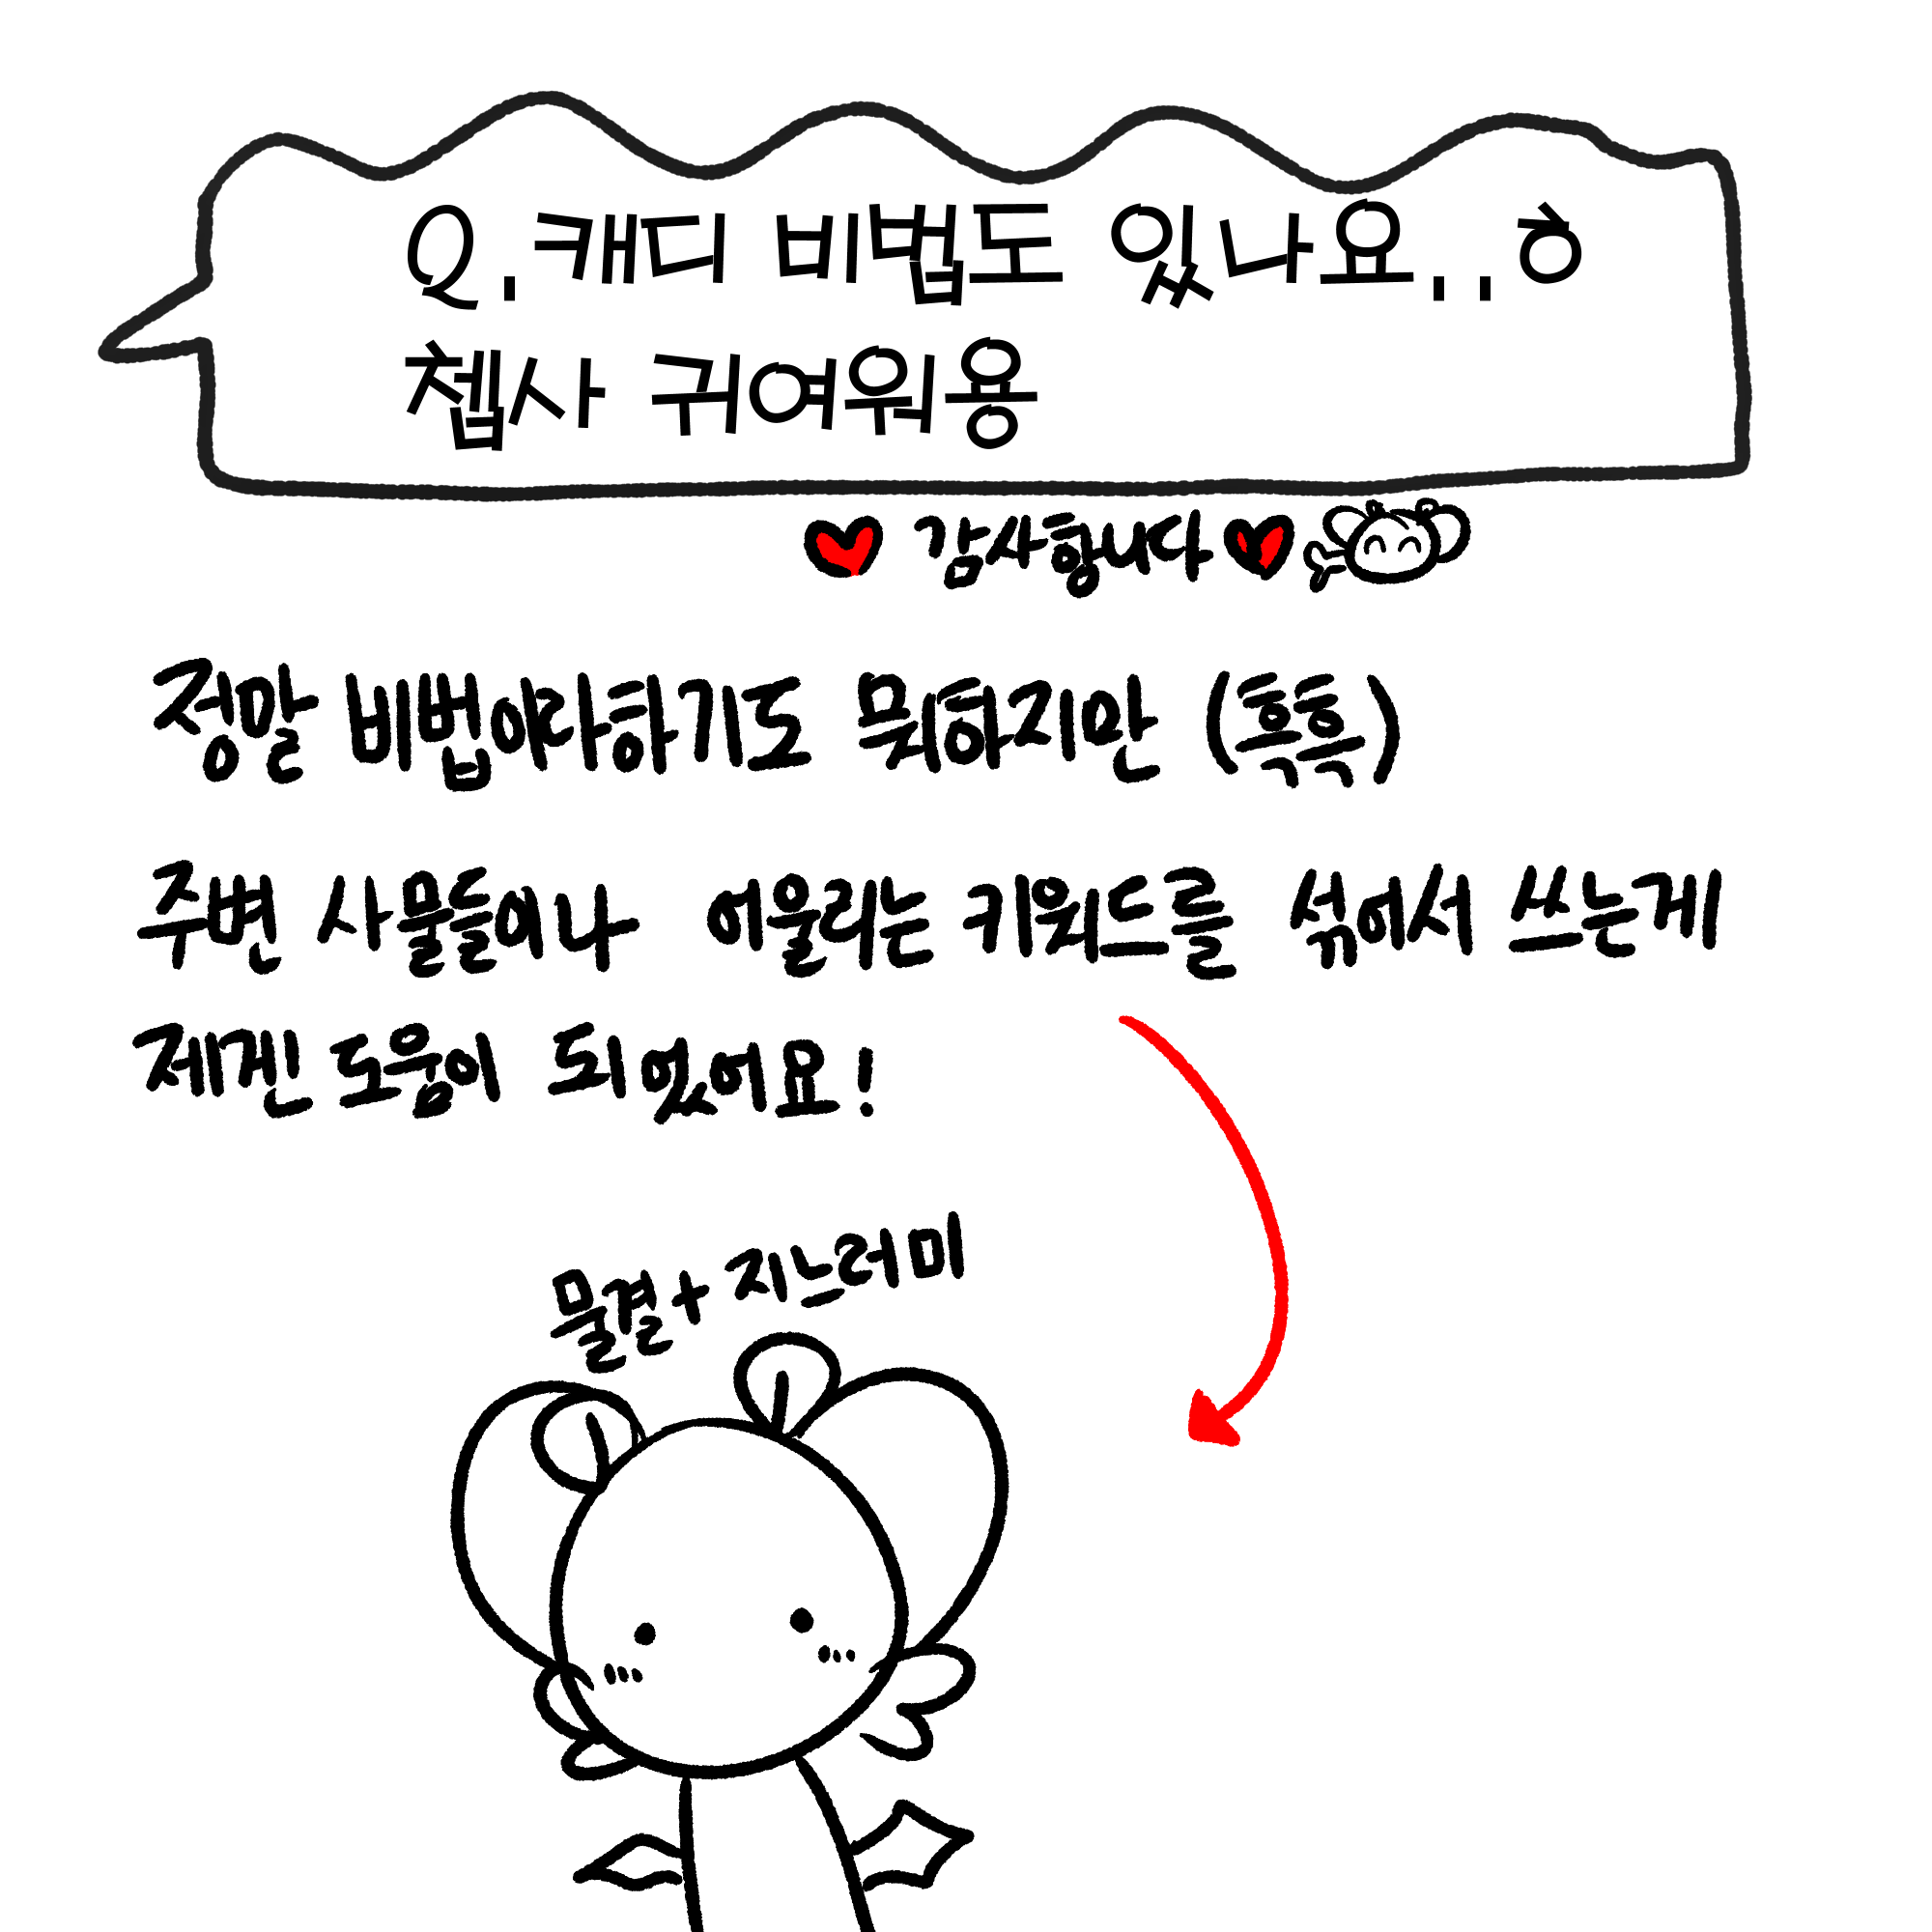 Q.캐디 비법도 있나요..ㅎ
쳅사 귀여워용
감사함니다
정말 비법이라하기도 뭐하지만 (흑흑)
주변 사물들이나 어울리는 키워드를 섞어서 쓰는게
제겐 도움이 되었어요!
물결+지느러미